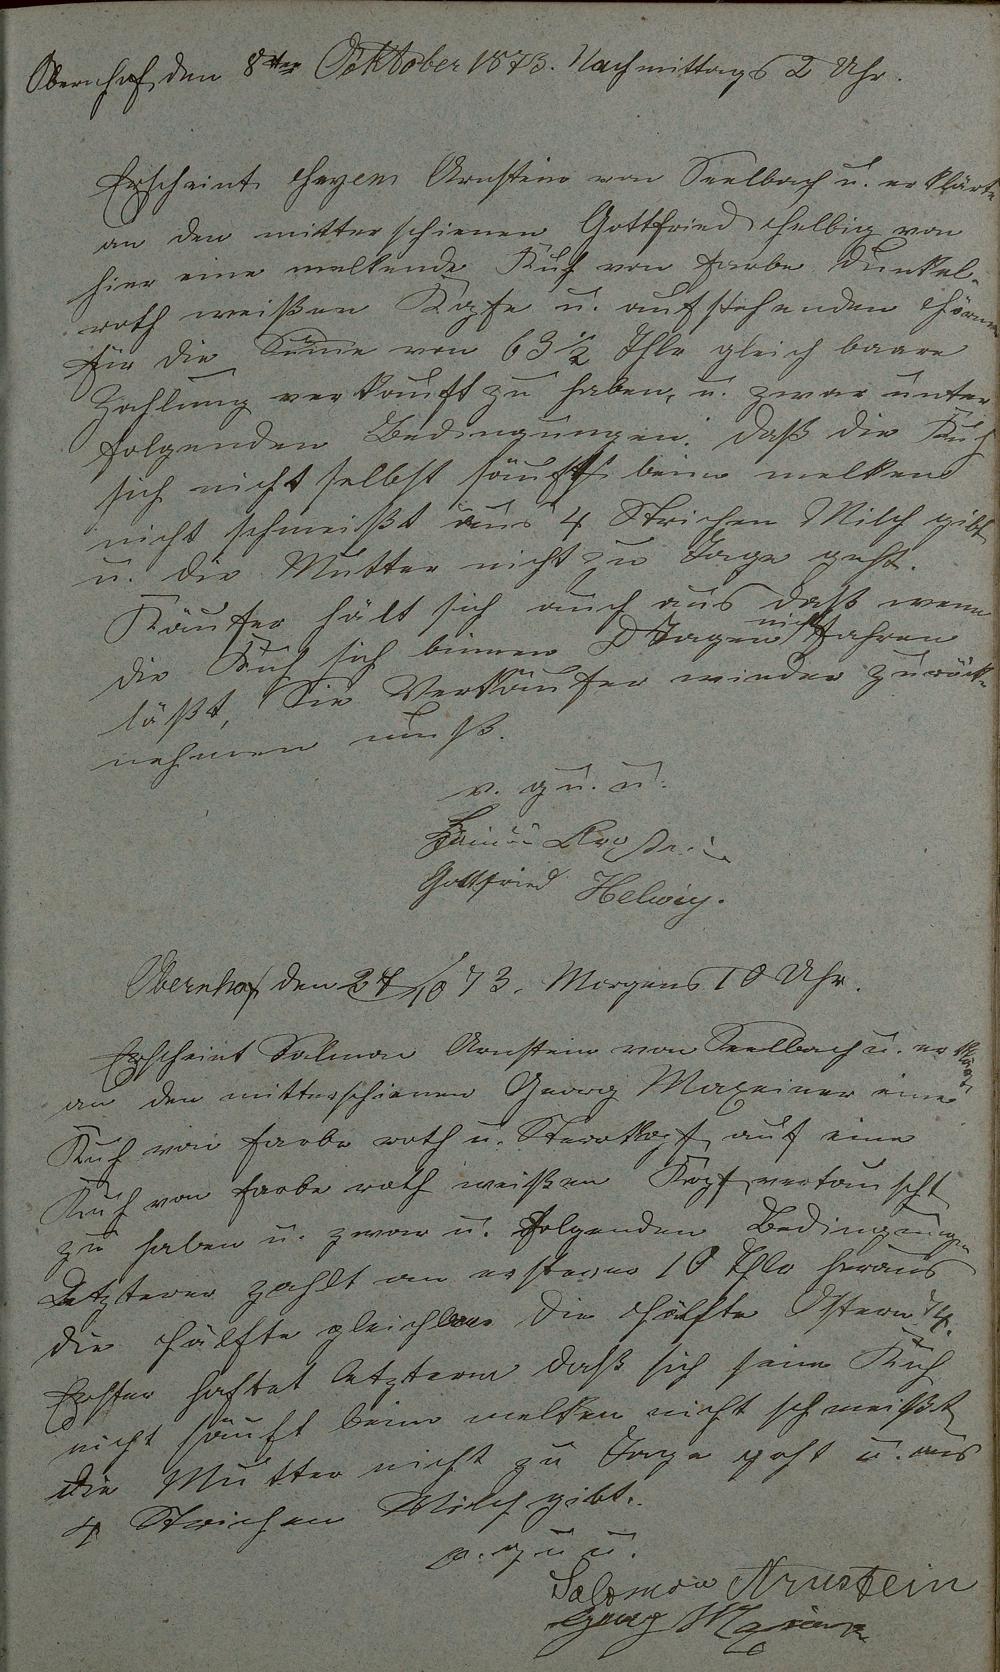 Obernhof, den 8ten Ocktober 1873. Nachmittags 2 Uhr.
Erscheint Hayem Arnstein von Seelbach u. erklärte
an den mitterschienen Gottfried Helbig von
hier eine melkende Kuh von Farbe dunkel-
roth weißen Kopfe u. aufstehenden Hörner
für die Sume von 63 1/2 Thlr gleich baare
Zahlung verkauft zu haben, u. zwar unter
folgenden Bedingungen: daß die Kuh
sich nicht selbst säuft beim melken
nicht schmeißt aus 4 Strichen Milch gibt
u. die Mutter nicht zu Tage geht.
Käufer hält sich auch aus daß wenn
die Kuh sich binnen 8 Tagen nicht fahren
läßt, Sie Verkäufer wieder zurück-
nehmen muß.
v. g. u. u.
Arnstein
Gottfried Helwig.
Obernhof den 27/10 73. Morgens 10 Uhr.
Erscheint Salmon Arnstein von Seelbach u. erklärt
an den mitterschienen Georg Maxeiner eine
Kuh von Farbe roth u. Sternkopf auf eine
Kuh von Farbe roth weißen Kopf vertauscht
zu haben u. zwar u. folgenden Bedingungen
Letzterer zahlt an ersterer 10 Thlr heraus
die Hälfte gleich baar die Hälfte Ostern 74.
Erster haftet letzterm daß sich seine Kuh
nicht säuft beim melken nicht schmeißt
die Mutter nicht zu Tage geht u. aus
4 Strichen Milch gibt.
v. g. u. u.
Salomon Arnstein
Georg Maxeiner